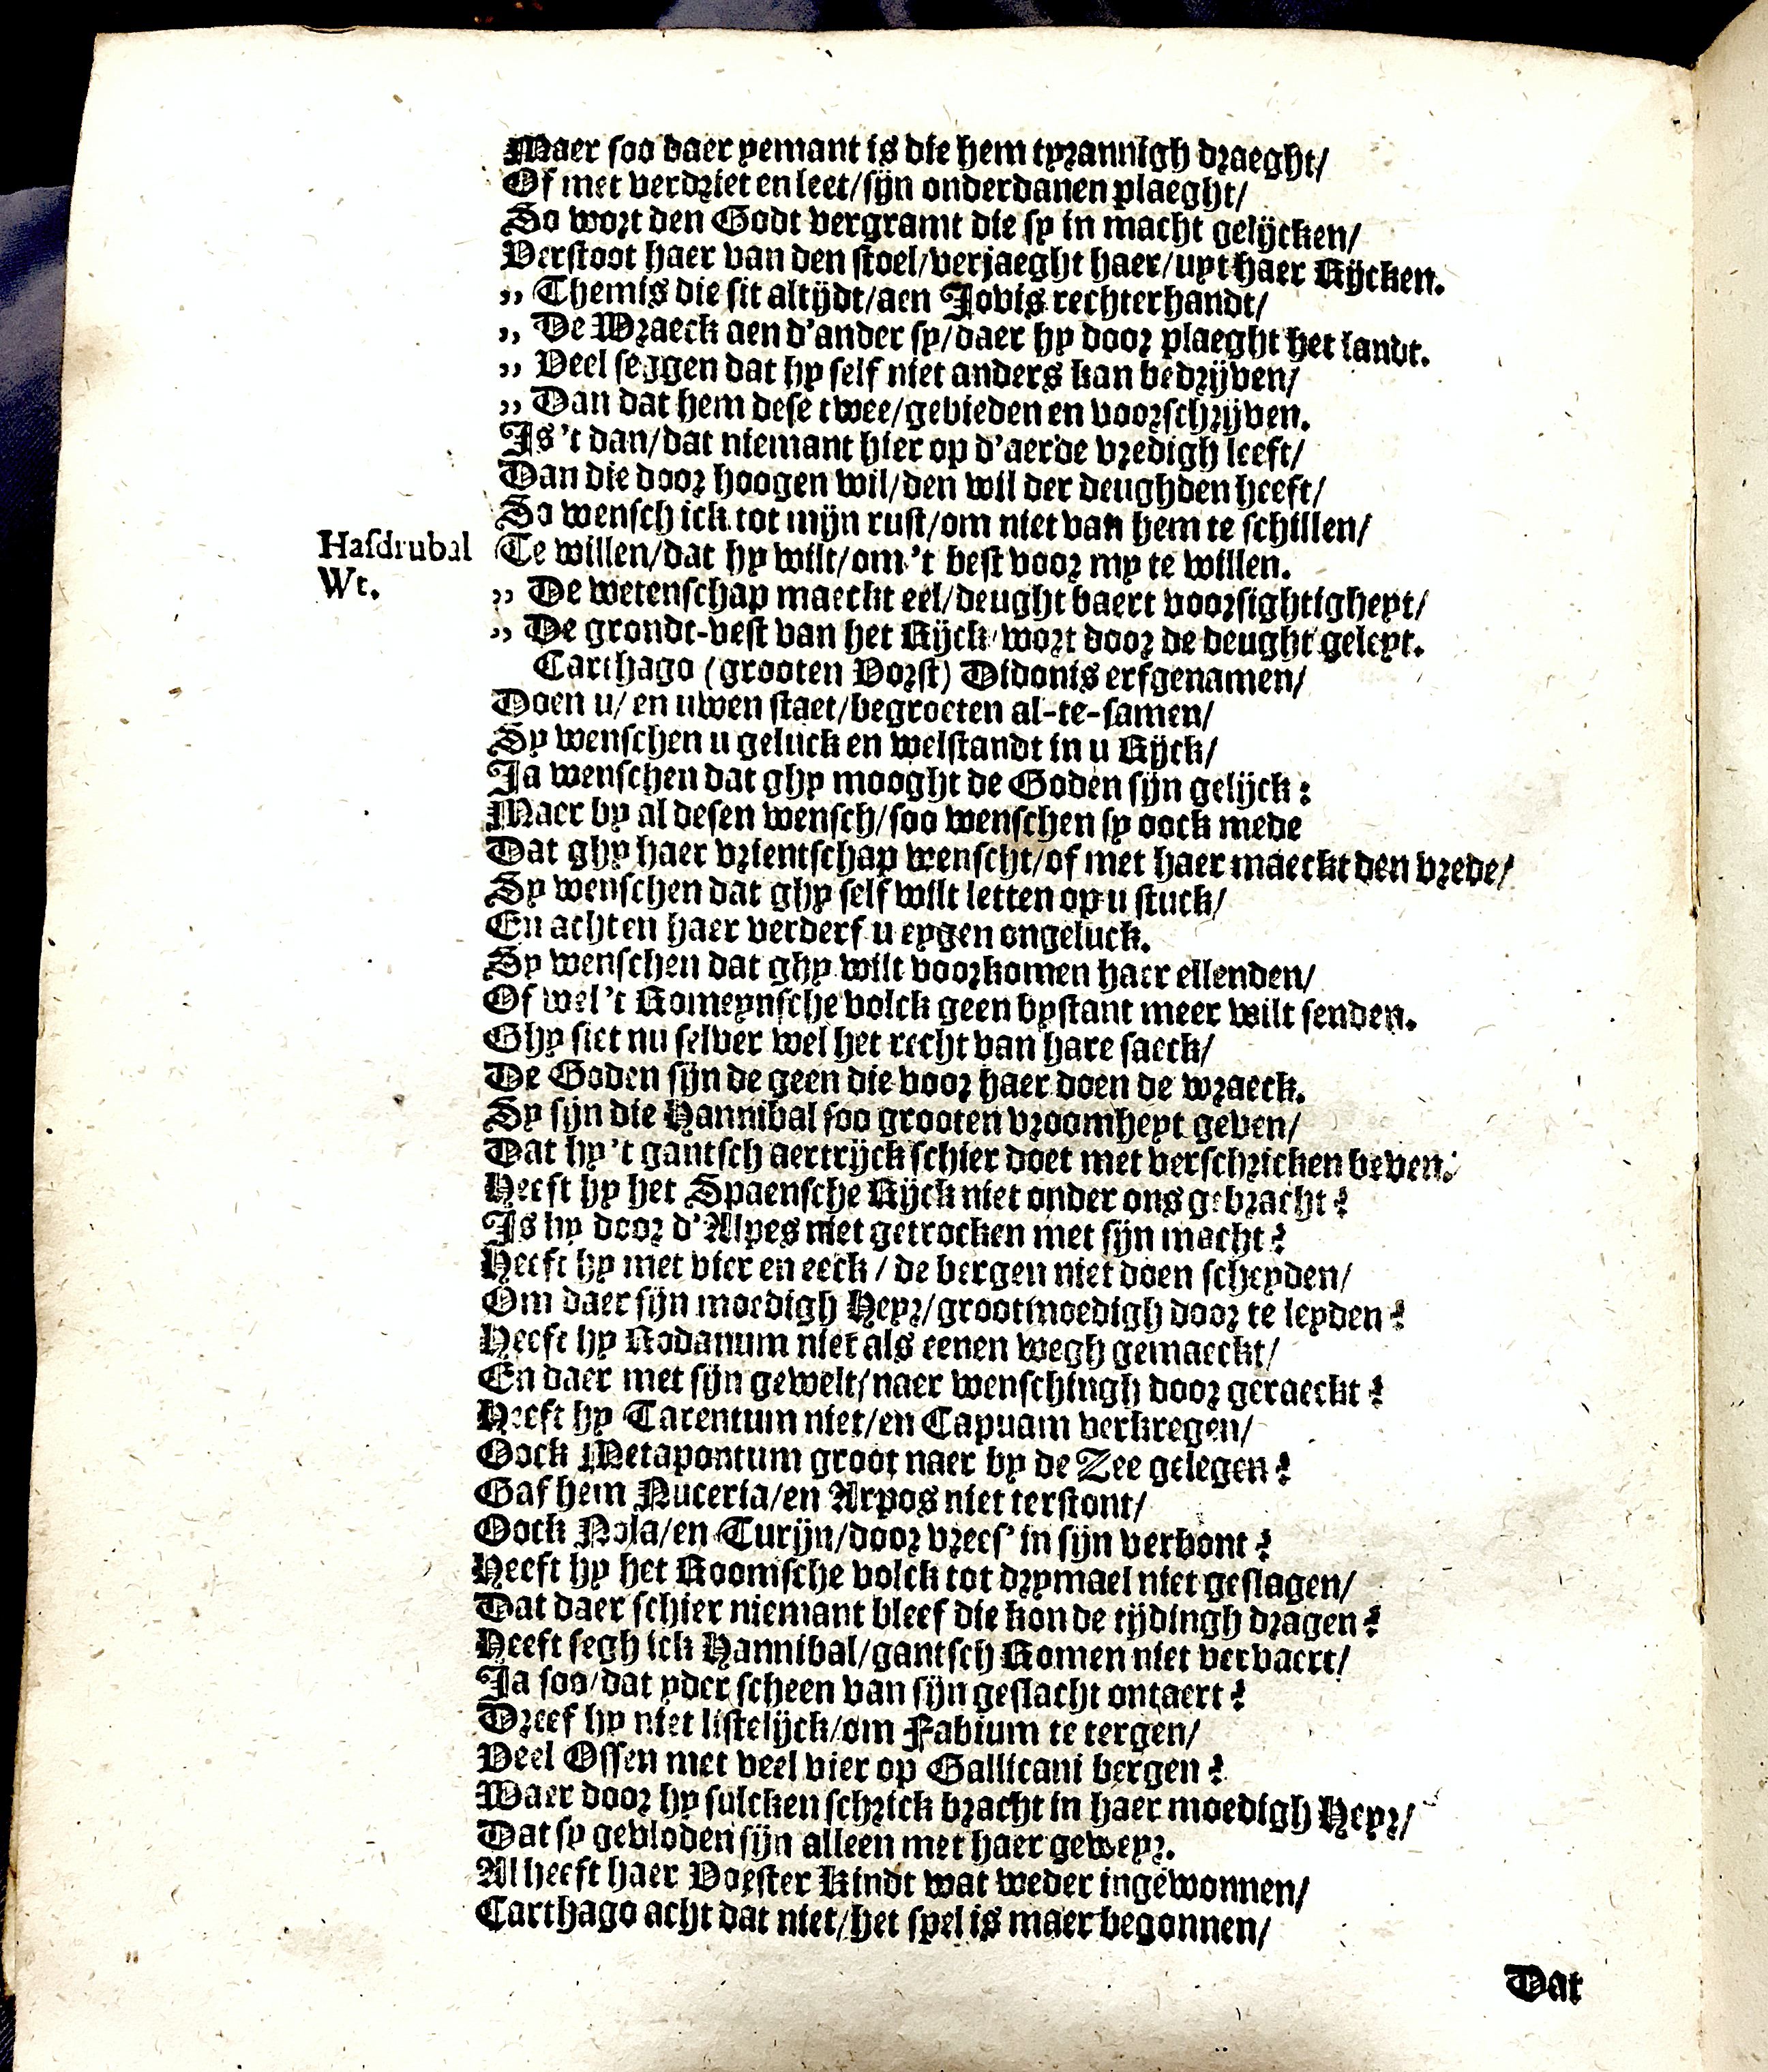 Maer soo daer yemant is die hem tyrannigh draeght/
Of met verdriet en leet/sijn onderdanen plaeght/
So wort den Godt vergramt die sy in macht gelijcken/
Verstoot haer van den stoel/verjaeght haer/uyt haer Rijcken.
,, Themis die sit altijdt/aen Jovis rechterhandt/
,, De Wraeck aen d'ander sy/daer hy door plaeght het landt.
,, Veel seggen dat hy self niet anders kan bedrijven/
,, Dan dat hem dese twee/gebieden en voorschrijven.
Is 't dan/dat niemant hier op d'aerde vredigh leeft/
Dan die door hoogen wil/den wil der deughden heeft/
So wensch ick tot mijn rust/om niet van hem te schillen/
Hasdrubal Wt.
Te willen/dat hy wilt/om 't best voor my te willen.
,, De wetenschap maeckt eel/deught baert voorsightigheyt/
,, De grondt-vest van het Rijck/wort door de deught geleyt.
Carthago (grooten Vorst) Didonis erfgenamen/
Doen u/ en uwen staet/begroeten al-te-samen/
Sy wenschen u geluck en welstandt in u Rijck/
Ja wenschen dat ghy mooght de Goden sijn gelijck:
Maer by al desen wensch/soo wenschen sy oock mede
Dat ghy haer vrientschap wenscht/of met haer maeckt den vrede/
Sy wenschen dat ghy self wilt letten op u stuck/
En achten haer verderf u eygen ongeluck.
Sy wenschen dat ghy wilt voorkomen haer ellenden/
Of wel 't Romeynsche volck geen bystant meer wilt senden.
Ghy siet nu selver wel het recht van hare saeck/
De Goden sijn de geen die voor haer doen de wraeck.
Sy sijn die Hannibal soo grooten vroomheyt geven/
Dat hy 't gantsch aertrijck schier doet met verschricken beven.
Heeft hy het Spaensche Rijck niet onder ons gebracht?
Is hy door d'Alpes niet getrocken met sijn macht?
Heeft hy met vier en eeck / de bergen niet doen scheyden/
Om daer sijn moedigh Heyr/grootmoedigh door te leyden?
Heeft hy Rodanum niet als eenen wegh gemaeckt/
En daer met sijn gewelt/naer wenschingh door geraeckt?
Heeft hy Tarentum niet/en Capuam verkregen/
Oock Metapontum groot naer by de Zee gelegen?
Gaf hem Nuceria/en Arpos niet terstont/
Oock Nola/en Turijn/door vrees' in sijn verbont?
Heeft hy het Roomsche volck tot drymael niet geslagen/
Dat daer schier niemant bleef die kon de tijdingh dragen?
Heeft segh ick Hannibal/gantsch Romen niet vervaert/
Ja soo/dat yder scheen van sijn geslacht ontaert?
Dreef hy niet listelijck/om Fabium te tergen/
Veel Ossen met veel vier op Gallicani bergen?
Waer door hy sulcken schrick bracht in haer moedigh Heyr/
Dat sy gevloden sijn alleen met haer geweyr.
Al heeft haer Voester Kindt wat weder ingewonnen/
Carthago acht dat niet/het spel is maer begonnen/
Dat